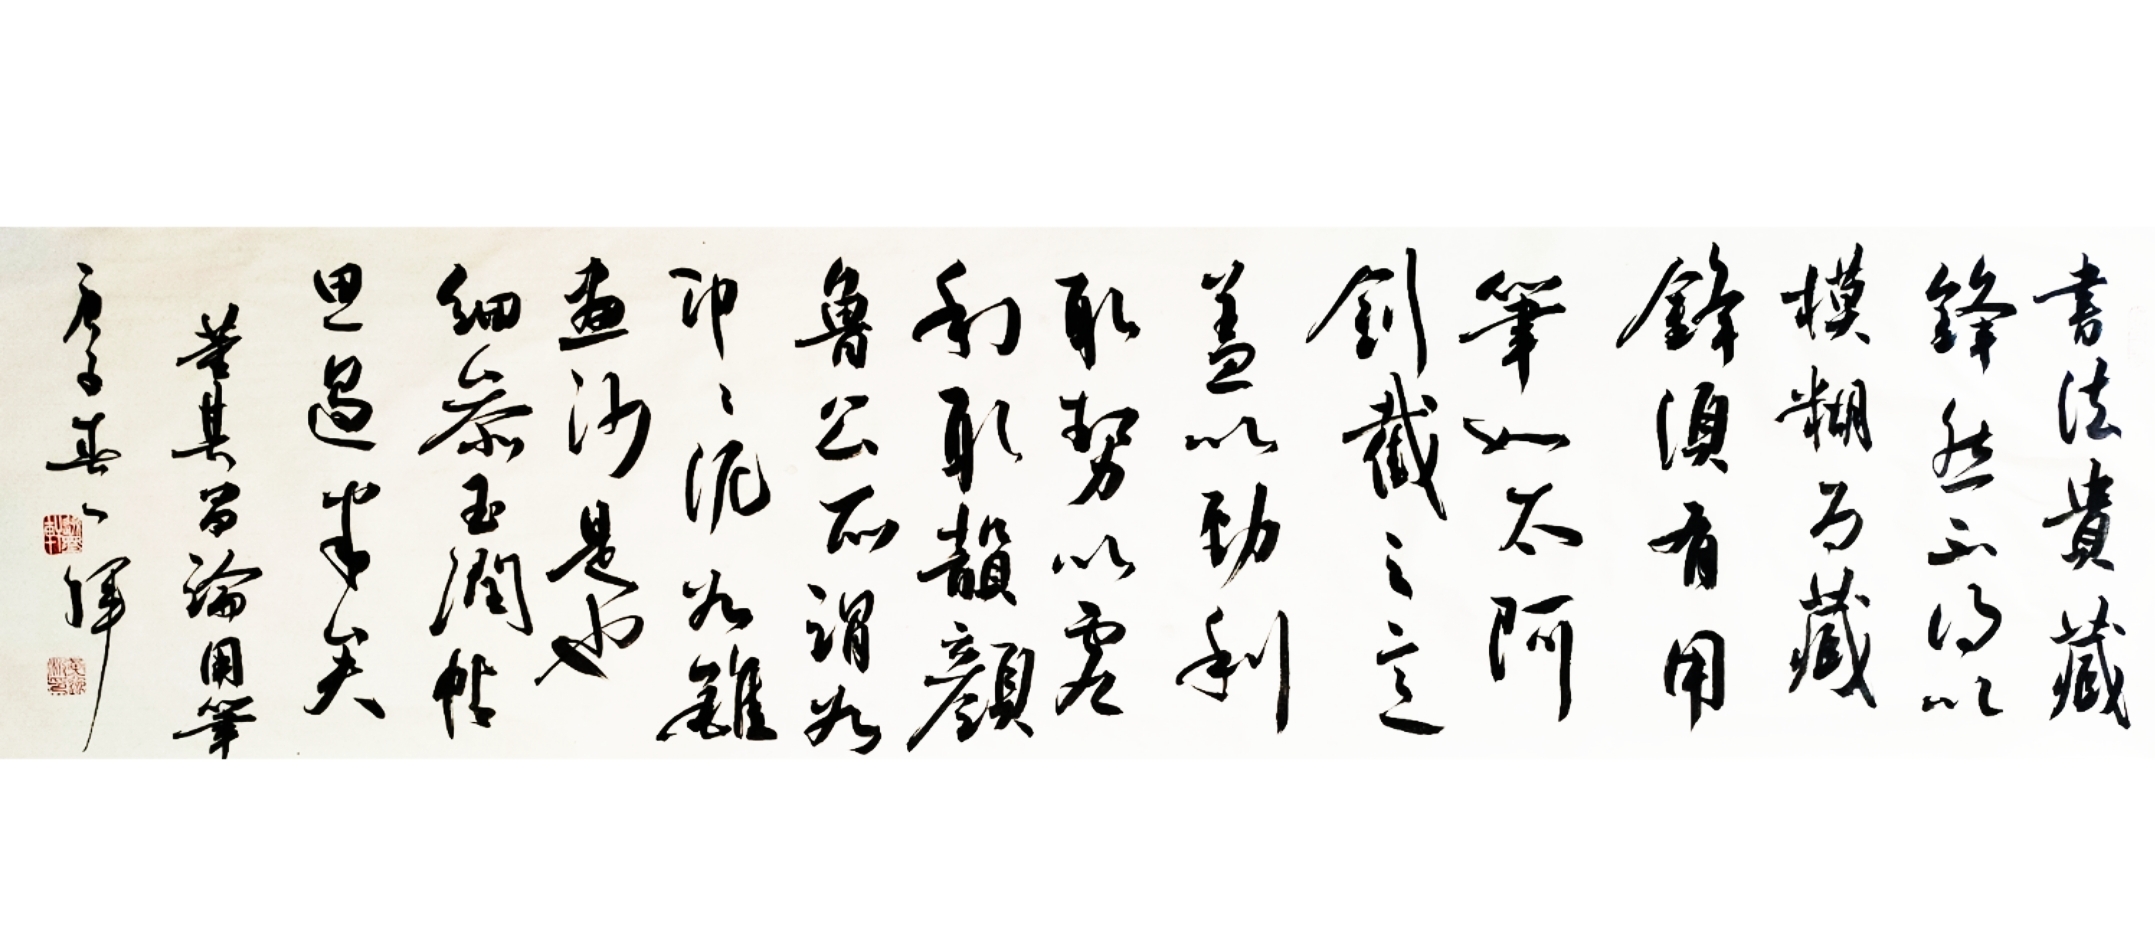 書法貴藏
鋒然不得以
模糊為藏
鋒須有用
筆如太阿
劍截之意
蓋以勁利
取勢以虚
利取韻顏
魯公所謂如
印〻泥如錐
畫沙是也
細參玉潤帖
思過半矣
董其昌論用筆
庚子春一輝